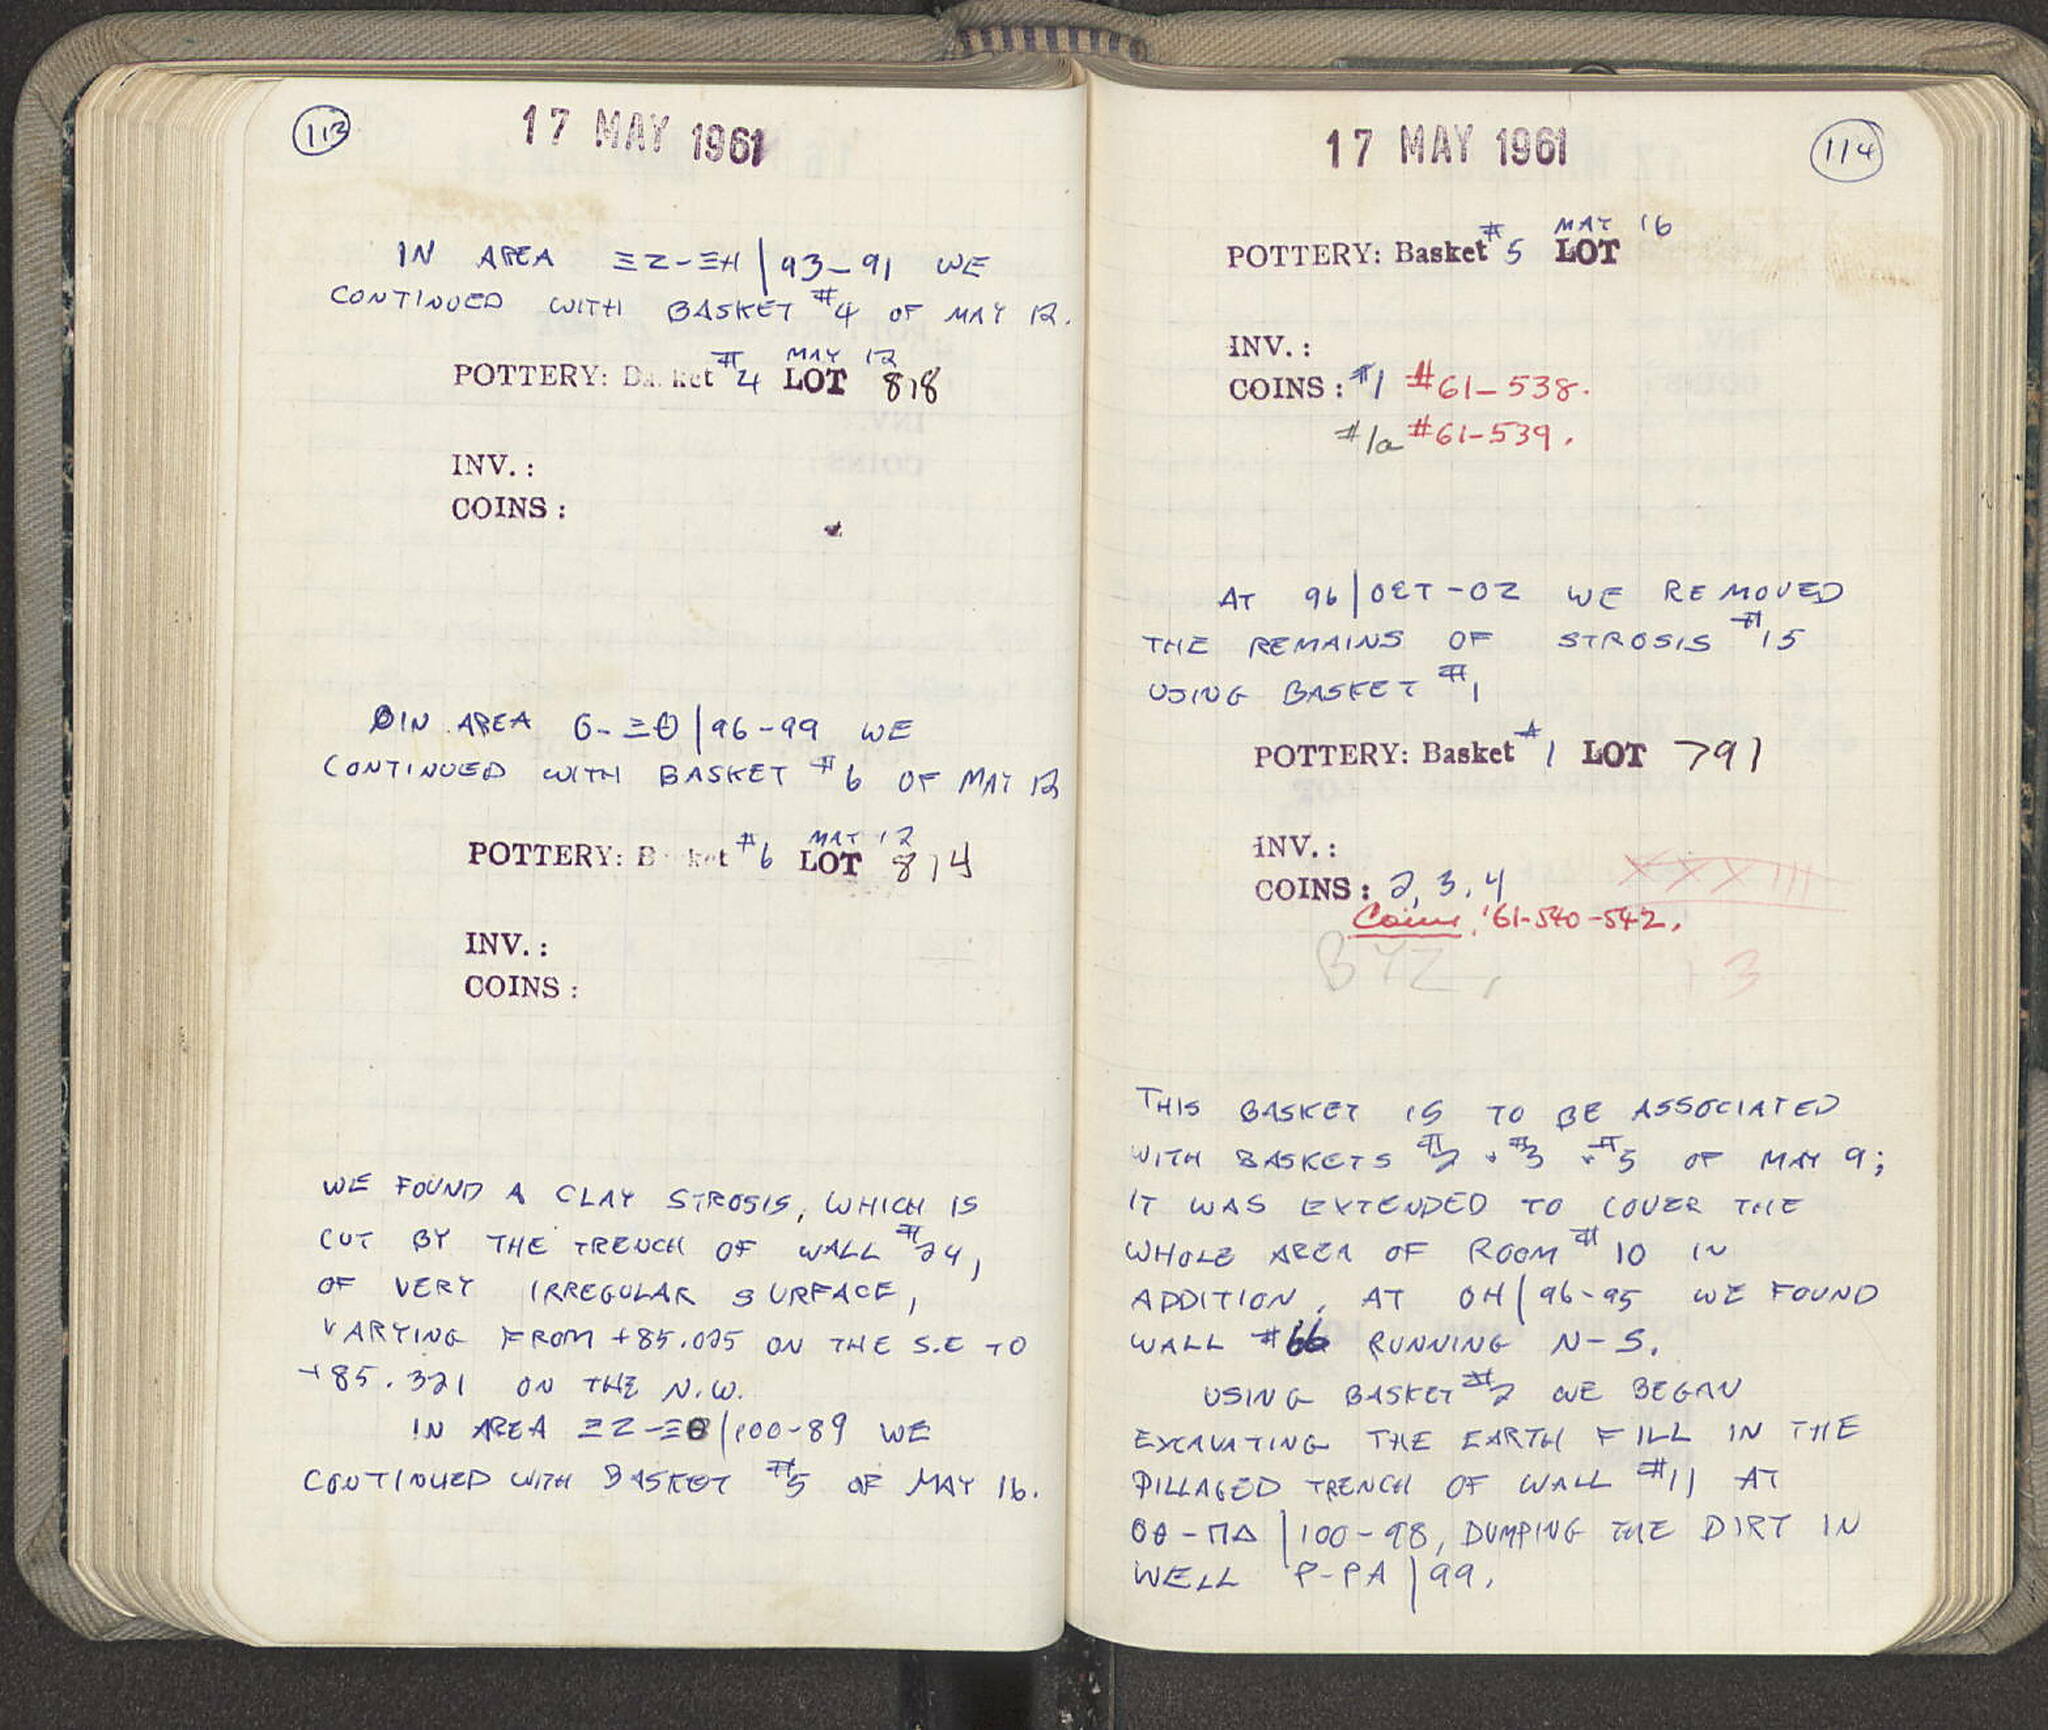 113
17 MAY 1961
IN AREA ΞΖ-ΞΗ | 93-91 WE
CONTINUED WITH BASKET #4 OF MAY 12.
MAY 12
POTTERY: Basket #4 LOT 818
INV.:
COINS:
IN AREA Ο-ΞΘ | 96-99 WE
CONTINUED WITH BASKET #6 OF MAY 12
MAY 12
POTTERY: Basket #6 LOT 814
INV.:
COINS:
WE FOUND A CLAY STROSIS, WHICH IS
CUT BY THE TRENCH OF WALL #24,
OF VERY IRREGULAR SURFACE,
VARYING FROM +85.025 ON THE S.E TO
+85.321 ON THE N.W.
IN AREA ΞΖ-ΞΘ | 100-89 WE
CONTINUED WITH BASKET #5 OF MAY 16.
17 MAY 1961
114
MAY 16
POTTERY: Basket #5 LOT
INV.:
COINS: #1 #61-538.
#1a #61-539.
AT 96 | ΟΣΤ-ΟΖ WE REMOVED
THE REMAINS OF STROSIS #15
USING BASKET #1
POTTERY: Basket #1 LOT 791
INV.:
XXXIII
COINS: 2, 3, 4
Coins '61-540-542.
BYZ, 3
THIS BASKET IS TO BE ASSOCIATED
WITH BASKETS #2 + #3 + #5 OF MAY 9;
IT WAS EXTENDED TO COVER THE
WHOLE AREA OF ROOM #10 IN
ADDITION. AT ΟΗ | 96-95 WE FOUND
WALL #66 RUNNING N-S.
USING BASKET #2 WE BEGAN
EXCAVATING THE EARTH FILL IN THE
PILLAGED TRENCH OF WALL #11 AT
ΟΘ-ΠΔ | 100-98, DUMPING THE DIRT IN
WELL Ρ-ΡΑ | 99.